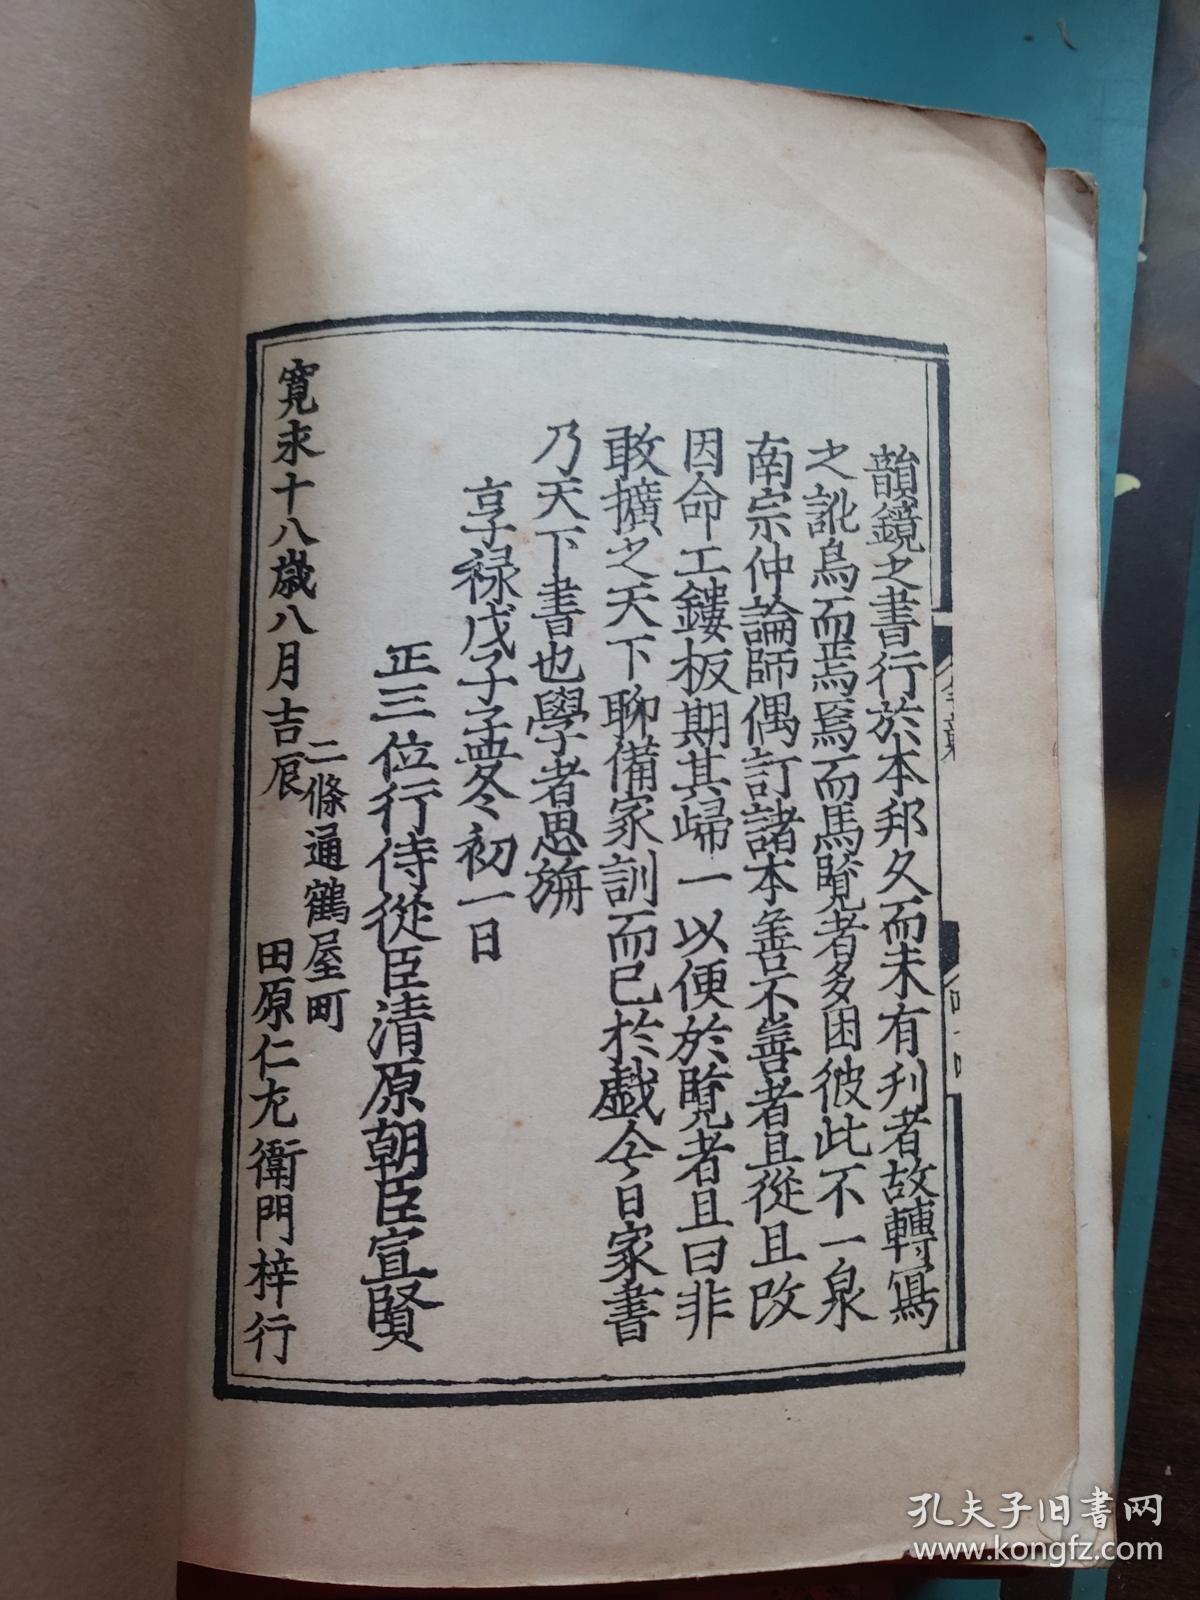 韻鏡之書行於本邦久而未有刊者故轉寫
之訛烏而焉焉而馬覽者多困彼此不一泉
南宗仲論師偶訂諸本善不善者且從且改
因命工鏤板期其歸一以便於覽者且曰非
敢擴之天下聊備家訓而已於戯今日家書
乃天下書也學者思旃
享禄戊子孟冬初一日
正三位行侍從臣清原朝臣宣賢
寛永十八歳八月吉辰
二條通鶴屋町
田原仁左衛門梓行
孔夫子旧书网
www.kongfz.com